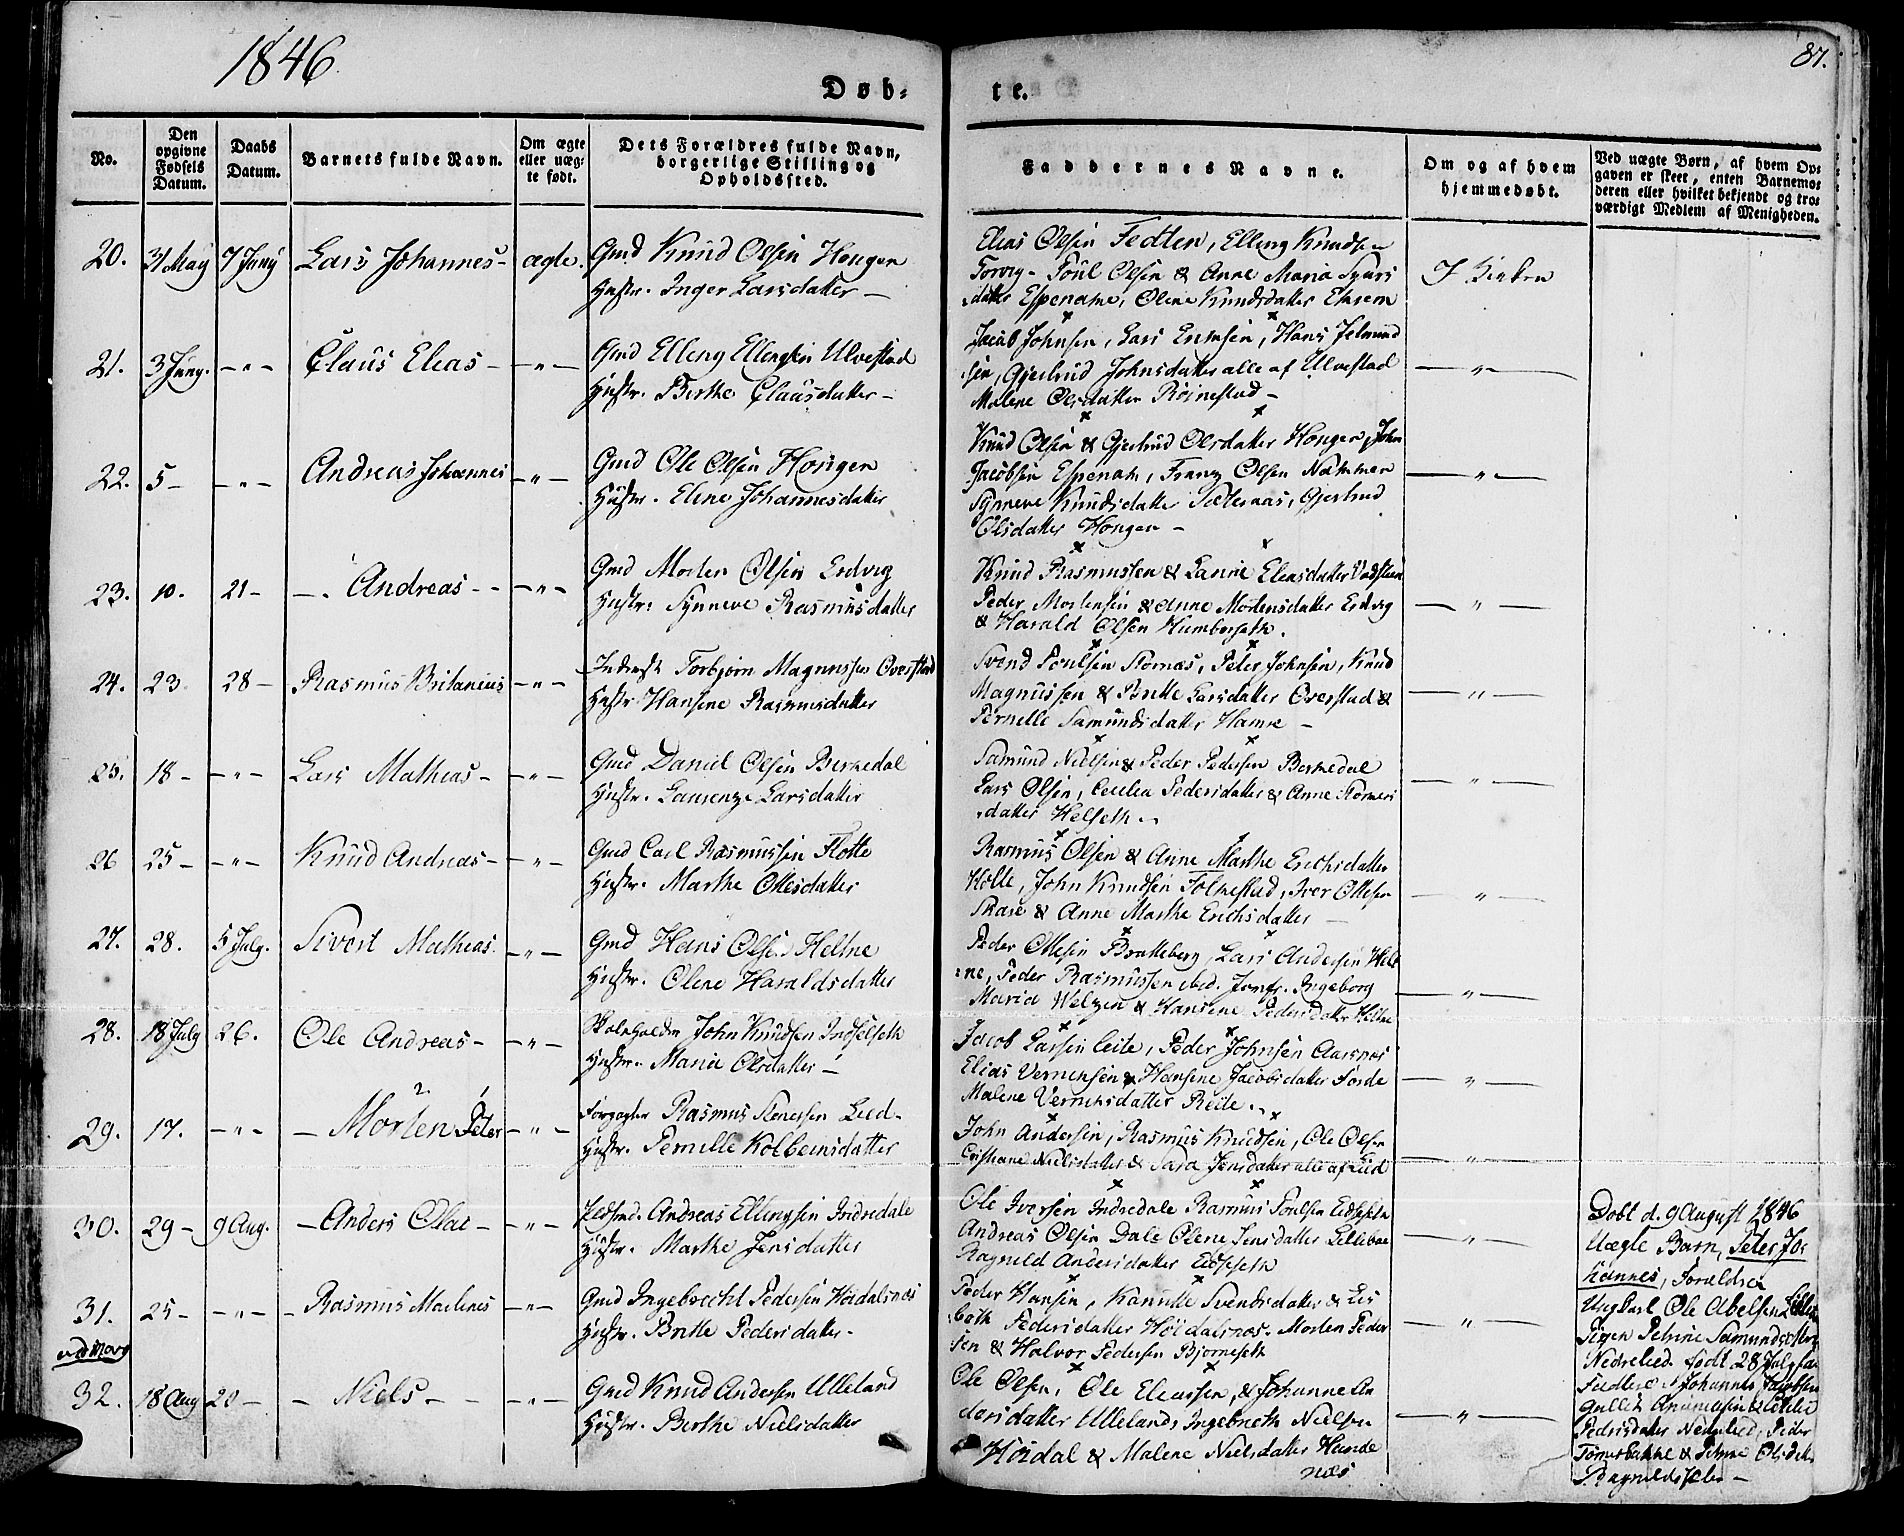 1846
87.
Døb-
te.
No.
Den opgivne Fødsels Datum.
Daabs Datum.
Barnets fulde Navn.
Om ægte eller uægte født.
Dets Forældres fulde Navn, borgerlige Stilling og Opholdssted.
Faddernes Navne.
Om og af hvem hjemmedøbt.
Ved uægte Børn, af hvem Opgaven er skeet, enten Barnemoderen eller hvilket bekjendt og troværdigt Medlem af Menigheden.
20. 31 May 7 Juny Lars Johannes - ægte. Gmd Knud Olsen Hougen
Hustr. Inger Larsdatter -
Elias Olsen Fedten, Elling Knudsen
Torvig - Poul Olsen & Anne Maria Syvers
datter Espename, Olene Knudsdatter Ehrem
I Kirken
21. 3 Juny. -"- Claus Elias - -"- Gmd Elling Ellingsen Ulvestad
Hustr. Berthe Clausdatter -
Jacob Johnsen, Lars Entnsen, Hans Jetmund
sen, Gjertrud Johnsdatter alle af Ulvestad
Malene Olsdatter Røinestad -
-"-
22. 5 - -"- Andreas Johannes -"- Gmd Ole Olsen Hougen
Hustr. Eline Johannesdatter
Knud Olsen & Gjertrud Olsdatter Hougen, John
Jacobsen Espenam, Franz Olsen Nammer
Synneve Knudsdatter Sæternæs, Gjertrud
Olsdatter Hougen -
-"-
23. 10. 21 - -. Andreas - - -"- Gmd Morten Olsen Eedvig
Hustr. Synneve Rasmusdatter
Knud Rasmussen & Hanne Eleasdatter Vadsteen
Peder Mortensen & Anne Mortensdatter Eedvig
& Harald Olsen Humberseth.
-"-
24. 23. 28 - Rasmus Britanius -"- Inderst Torbjørn Magnussen Overstad
Hustr Hansene Rasmusdatter
Svend Poulsen Stornæs, Peter Johnsen, Knud
Magnussen & Britte Larsdatter Overstad &
Pernelle Samundsdatter Hamre -
-"-
25. 18 - -"- Lars Mathias - -"- Gmd Daniel Olsen Berkedal
Hustr. Laurenze Larsdatter
Samund Nielsen & Peder Pedersen Berkedal
Lars Olsen, Cecilia Pedersdatter & Anne Stoners
datter Helseth -
-"-
26 25 - -"- Knud Andreas - -"- Gmd Carl Rasmussen Flotte
Hustr. Marthe Ottesdatter
Rasmus Olsen & Anne Marthe Erichsdatter
Holte, John Knudsen Folkestad, Iver Ottesen
Skare & Anne Marthe Erichsdatter -
-"-
27. 28. 5 July. Sivert Mathias. -"- Gmd Hans Olsen Heltne
Hustr. Olene Haraldsdatter
Peder Ottesen Bratteberg, Lars Andersen Helt
ne, Peder Rasmussen ibid. Jomfr. Ingeborg
Maria Welzen & Hansene Pedersdatter Heltne
-"-
28. 18 July 26. Ole Andreas - -"- Skoleholder John Knudsen Indselseth
Hustr. Maria Olsdatter -
Jacob Larsen Leite, Peder Johnsen Aarsnæs
Elias Vernensen & Hansene Jacobsdatter Førde
Malene Vernensdatter Reite.
-"-
29. 17. -"- - Morten Peter -"- Forpagter Rasmus Stenersen Lied -
Hustr. Pernille Kolbeinsdatter
John Andersen, Rasmus Knudsen, Ole Olsen
Cristiane Nielsdatter & Sara Jensdatter alle af Lied
-"-
30. 29 - 9 Aug. - Anders Olai - -"- Pladsmd. Andreas Ellingsen Indredale
Hustr. Marthe Jensdatter
Ole Iversen Indredale Rasmus Poulsen Eidseseth
Andreas Olsen Dale Olene Jensdatter Lillebøe
Ragnild Andersdatter Eidseseth
-"-
31. 25 - -"- - Rasmus Marlines -"- Gmd Ingebrecht Pedersen Høidalsnæs
Hustr. Britte Pedersdatter -
Peder Hansen, Kanutte Svendsdatter & Lis
beth Pedersdatter Høidalsnæs. Morten Peder
sen & Halvor Pedersen Bjørneseth
-"-
32. 18 Aug 20 - - Niels - - -"- Gmd Knud Andersen Ulleland
Hustr. Berthe Nielsdatter
Ole Olsen, Ole Eleassen, & Johanne An
dersdatter Ulleland, Ingebreth Nielsen
Høidal & Malene Nielsdatter Hunde
næs
-"-
Døbt d. 9 August 1846
Uægte Barn, Peter Jo
hannes, Forældre
Ungkarl Ole Abelsen
Pigen Petrine Samundsdtr
Nedrelied. født 28 July
Faddere Johannes Jacobsen
Pedersdatter Nedrelied, Peder